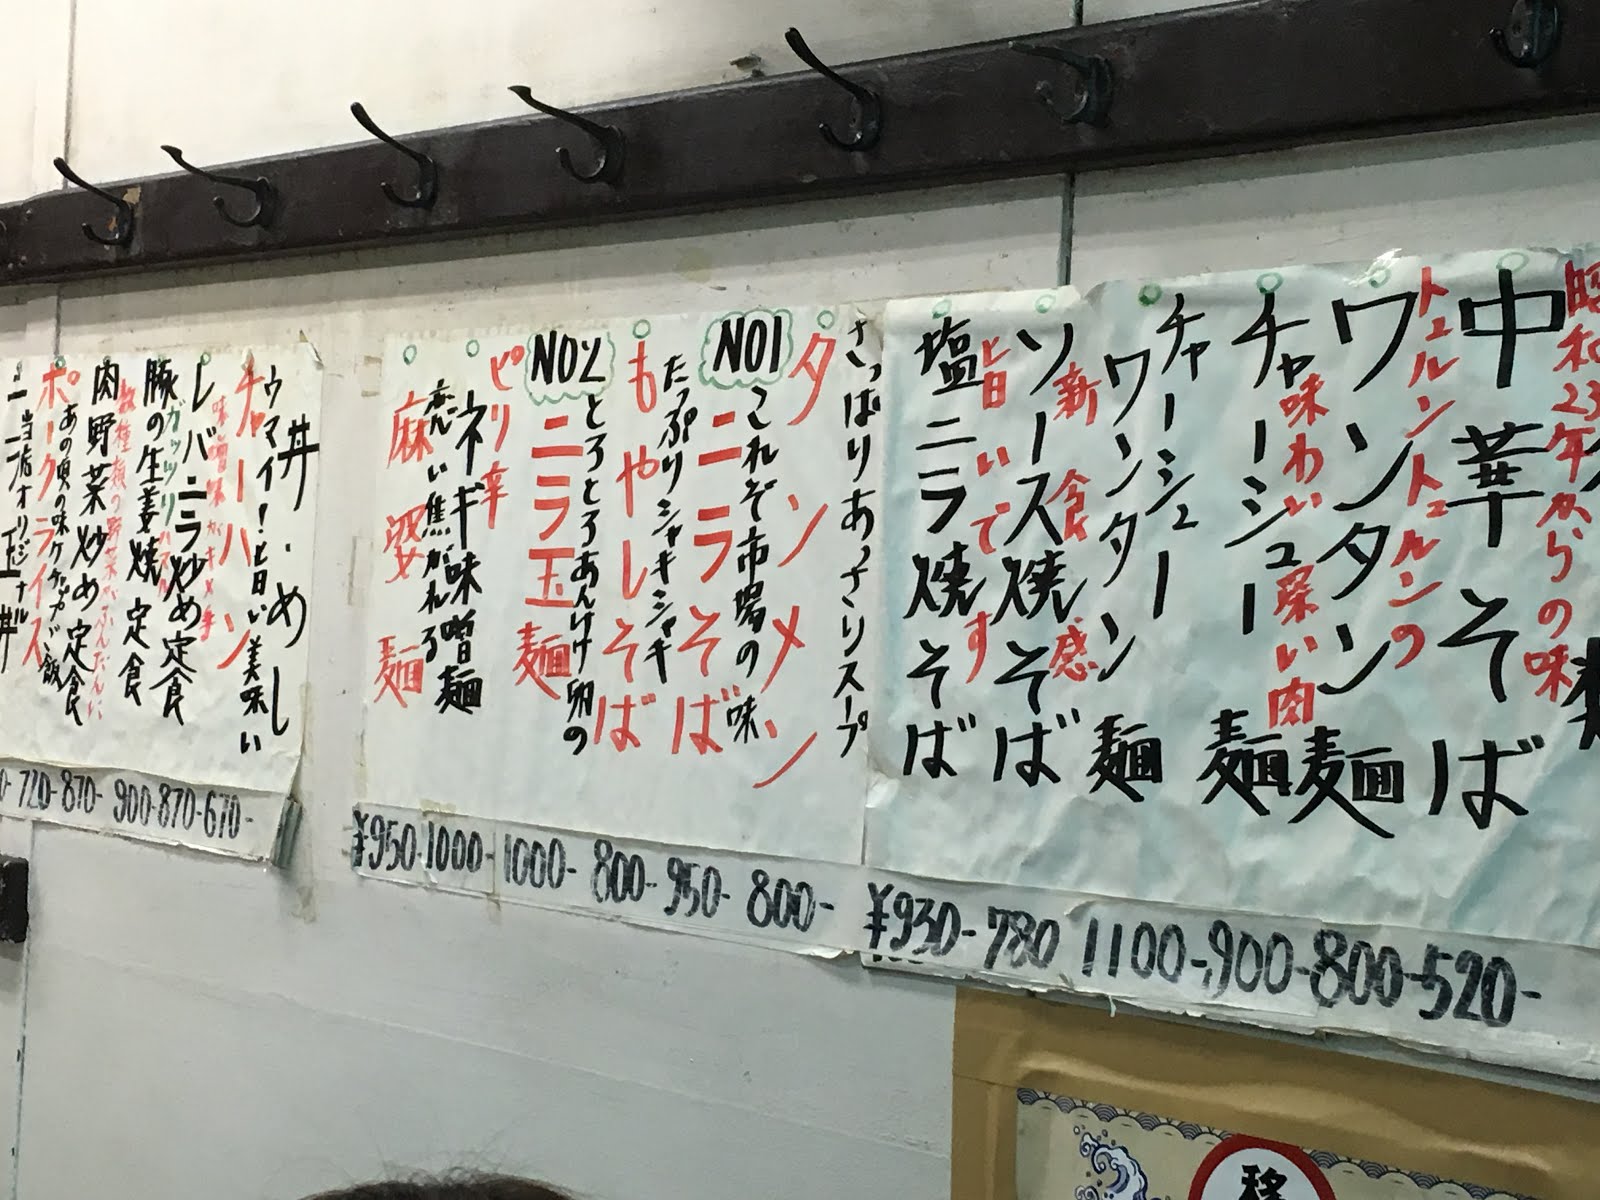 昭和23年からの味
中華そば
トゥルントゥルンの
ワンタン麺
味わい深い肉
チャーシュー麺
チャーシュー
ワンタン麺
新食感
ソース焼そば
旨いです
塩ニラ焼そば
¥930-780 1100-900-800-520-
さっぱりあっさりスープ
タンメン
NO1
これぞ市場の味
ニラそば
たっぷりシャキシャキ
もやしそば
NO2
とろとろあんかけ卵の
ニラ玉麺
ピリ辛
ネギ味噌麺
恋い焦がれる
麻婆麺
¥950-1000-1000-800-950-800-
丼・めし
ウマイ!旨い美味い
チャーハン
レバニラ炒め定食
豚の生姜焼定食
肉野菜炒め定食
あの頃の味ケチャップご飯
ポークライス
当店オリジナル
720-870-900-870-670-
移